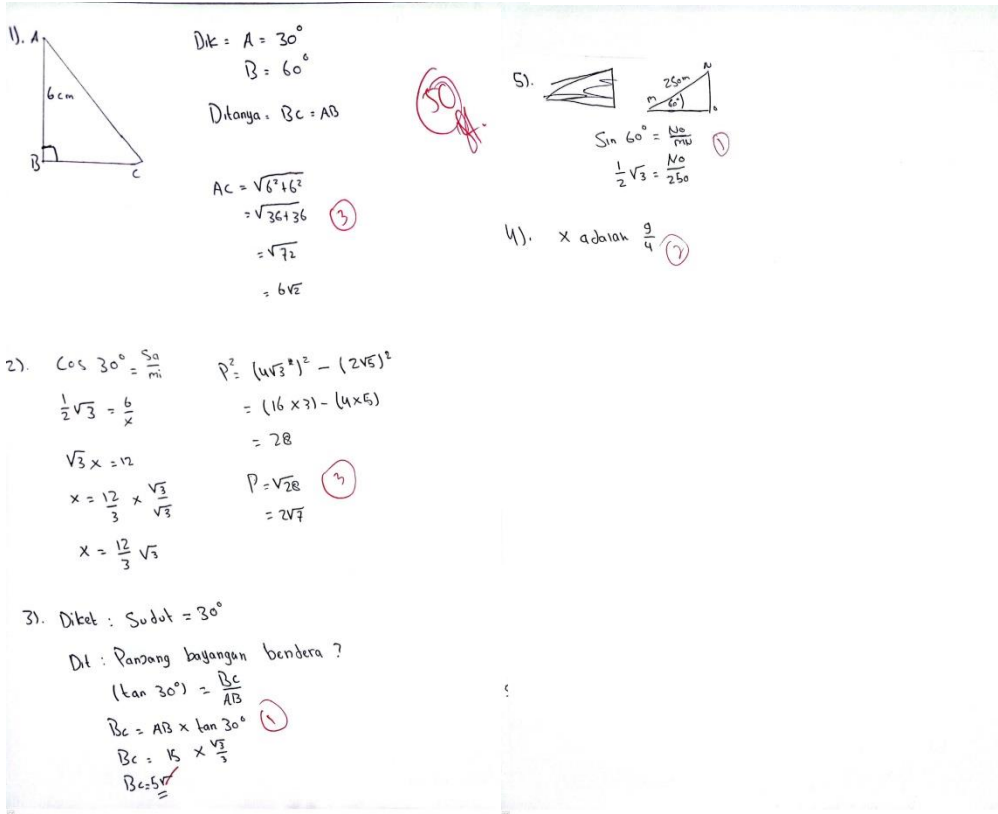 1). A
6 cm
B
C
Dik : A = 30°
B = 60°
Ditanya : BC = AB
AC = √6²+6²
= √36+36
3
= √72
= 6√2
50
2). Cos 30° = sa/mi
1/2 √3 = 6/x
√3 x = 12
x = 12/3 × √3/√3
x = 12/3 √3
P² = (4√3)² − (2√5)²
= (16 × 3) − (4×5)
= 28
P = √28
3
= 2√7
3). Diket : Sudut = 30°
Dit : Panjang bayangan bendera ?
(tan 30°) = BC/AB
BC = AB × tan 30°
1
BC = 15 × √3/3
BC = 5√
5).
N
250m
M
60°
Sin 60° = NO/MN
1
1/2 √3 = NO/250
4). x adalah 9/4
2